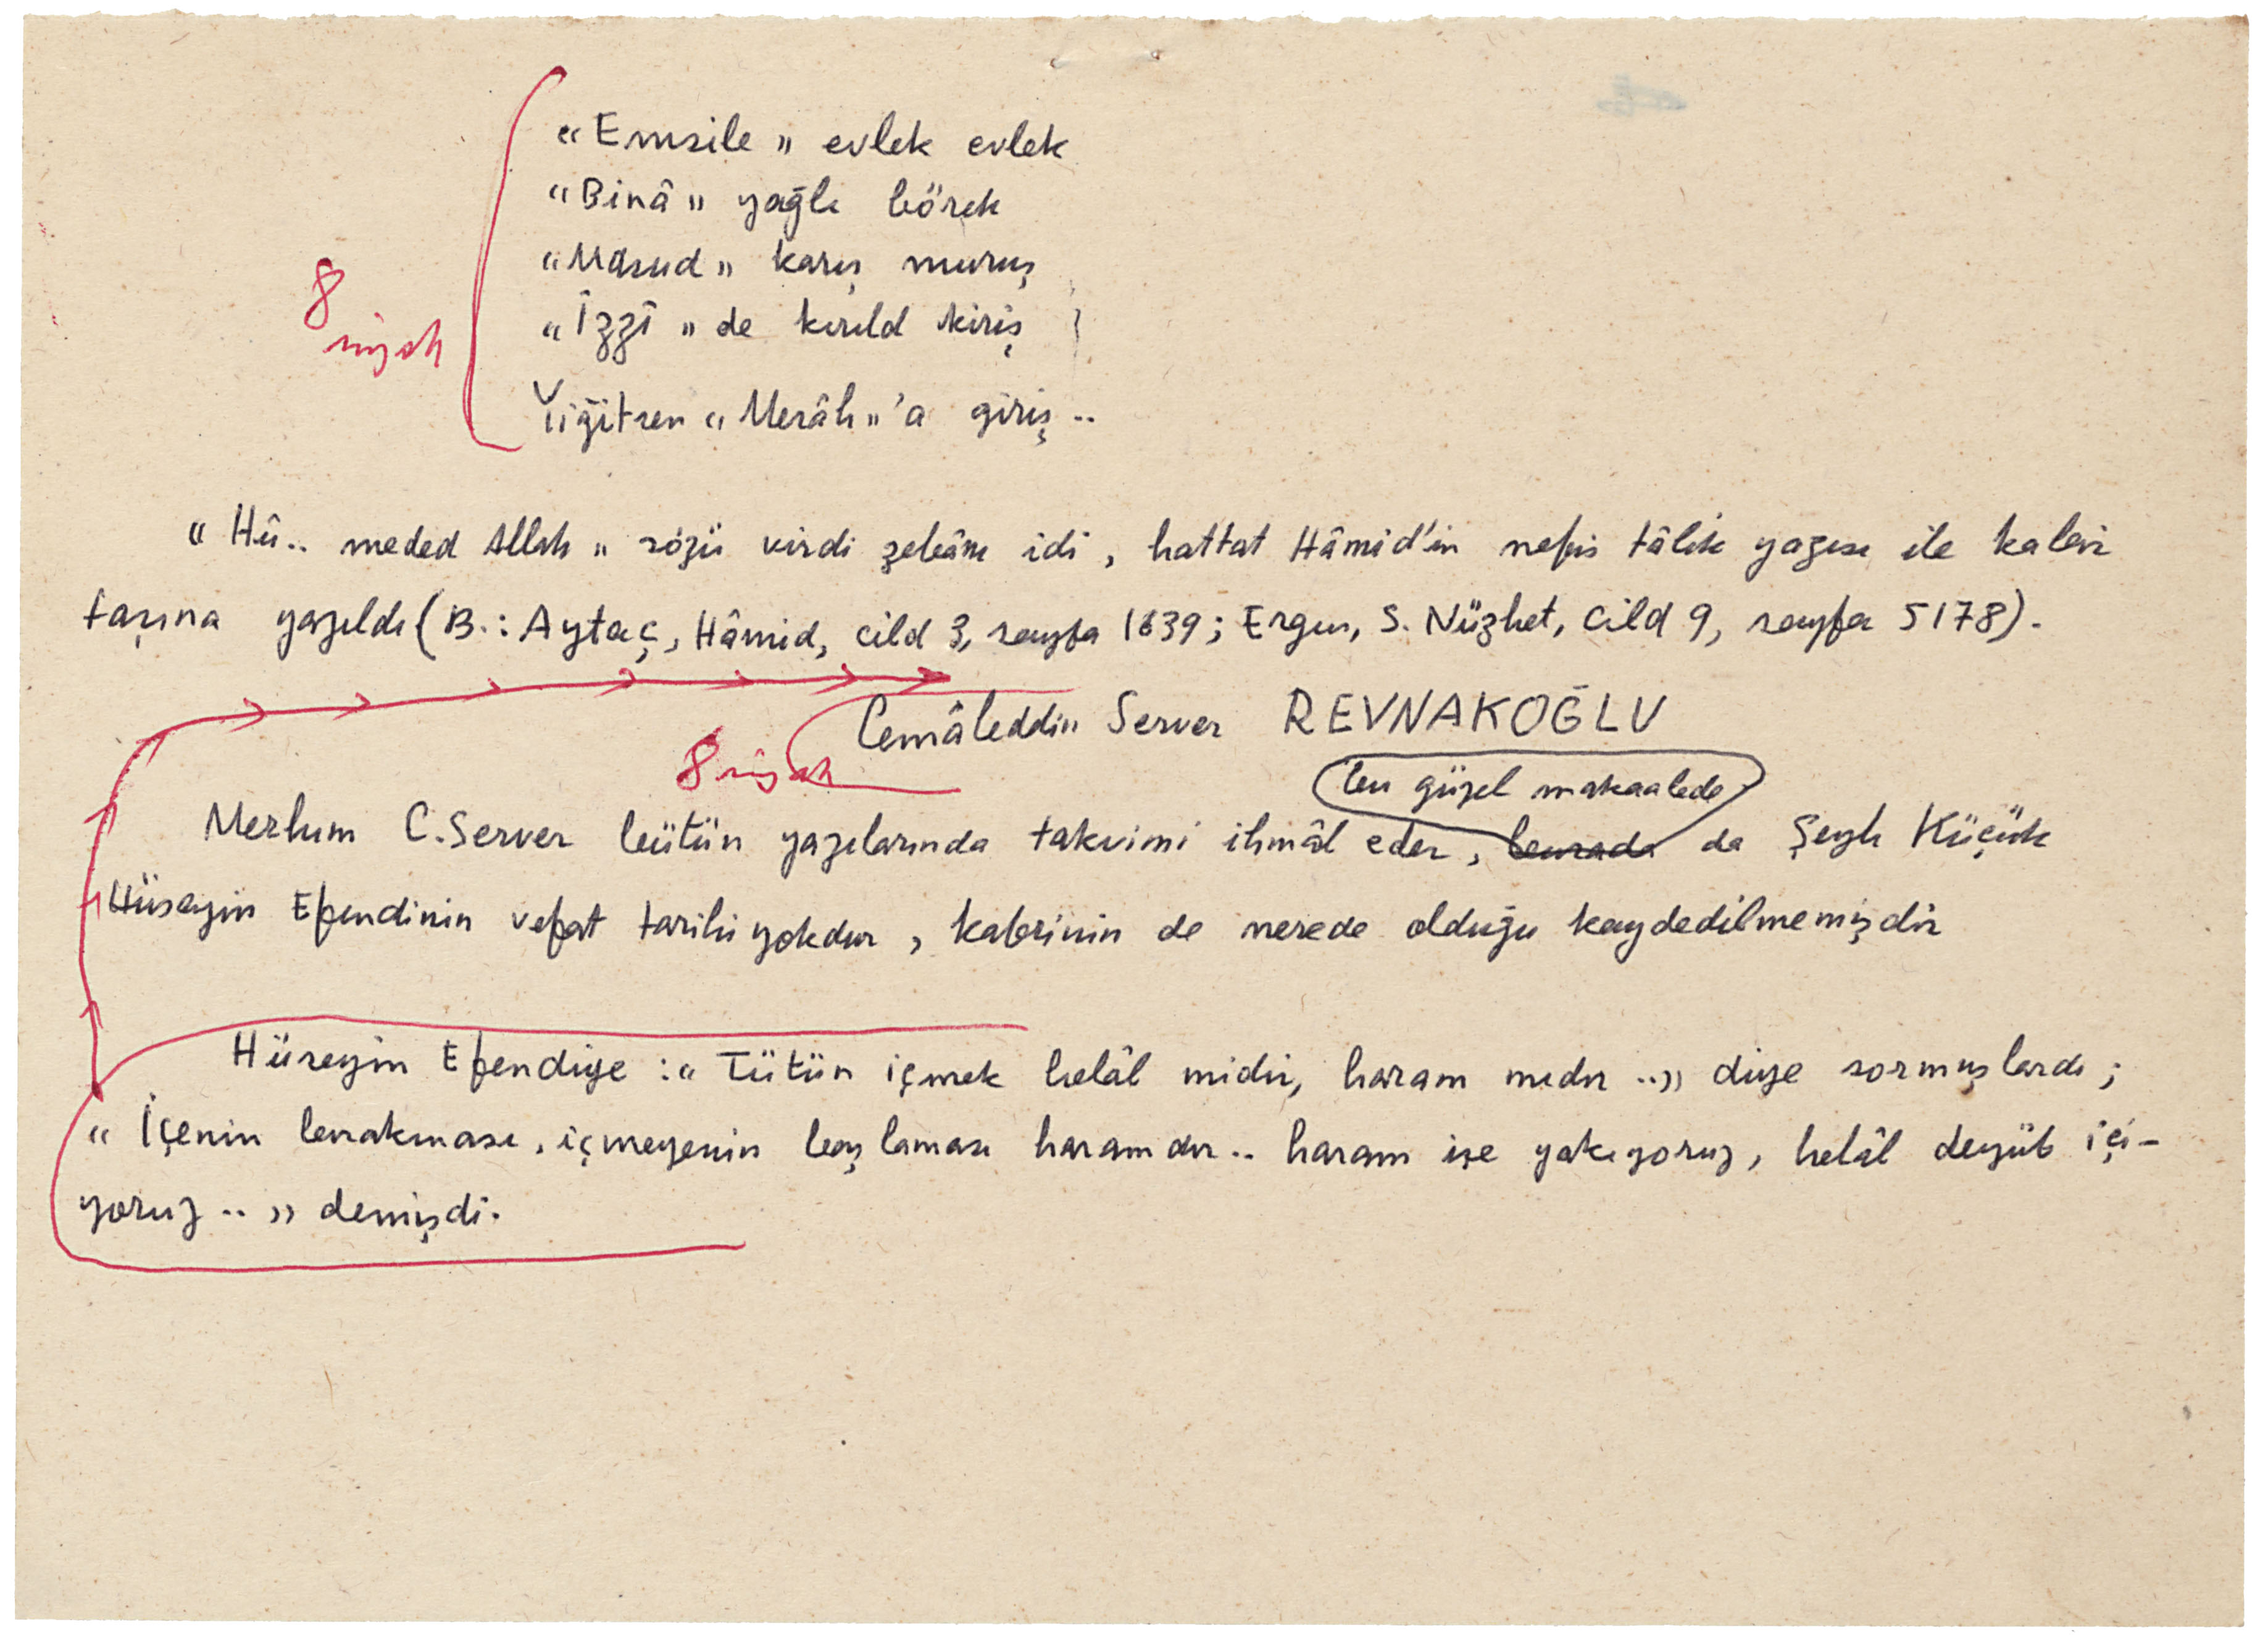 « Emsile » evlek evlek
« Binâ » yağlı börek
« Maksud » karış muruş
« İzzî » de kırıld kiriş
8
siyah
Yiğitsen « Merâh »'a giriş ..
« Hû.. meded Allah » sözü virdi zebânı idi, hattat Hâmid'in nefis tâlik yazısı ile kabir
taşına yazıldı (B.: Aytaç, Hâmid, cild 3, sayfa 1639; Ergun, S. Nüzhet, cild 9, sayfa 5178).
Cemâleddin Server REVNAKOĞLU
8 siyah
bu güzel makaalede
Merhum C. Server bütün yazılarında takvimi ihmâl eder, burada da Şeyh Küçük
Hüseyin Efendinin vefat tarihi yokdur, kabrinin de nerede olduğu kaydedilmemişdir
Hüseyin Efendiye : « Tütün içmek helâl midir, haram mıdır ..» diye sormuşlardı ;
« İçenin bırakması, içmeyenin başlaması haramdır.. haram ise yakıyoruz, helâl deyüb içi-
yoruz .. » demişdi.